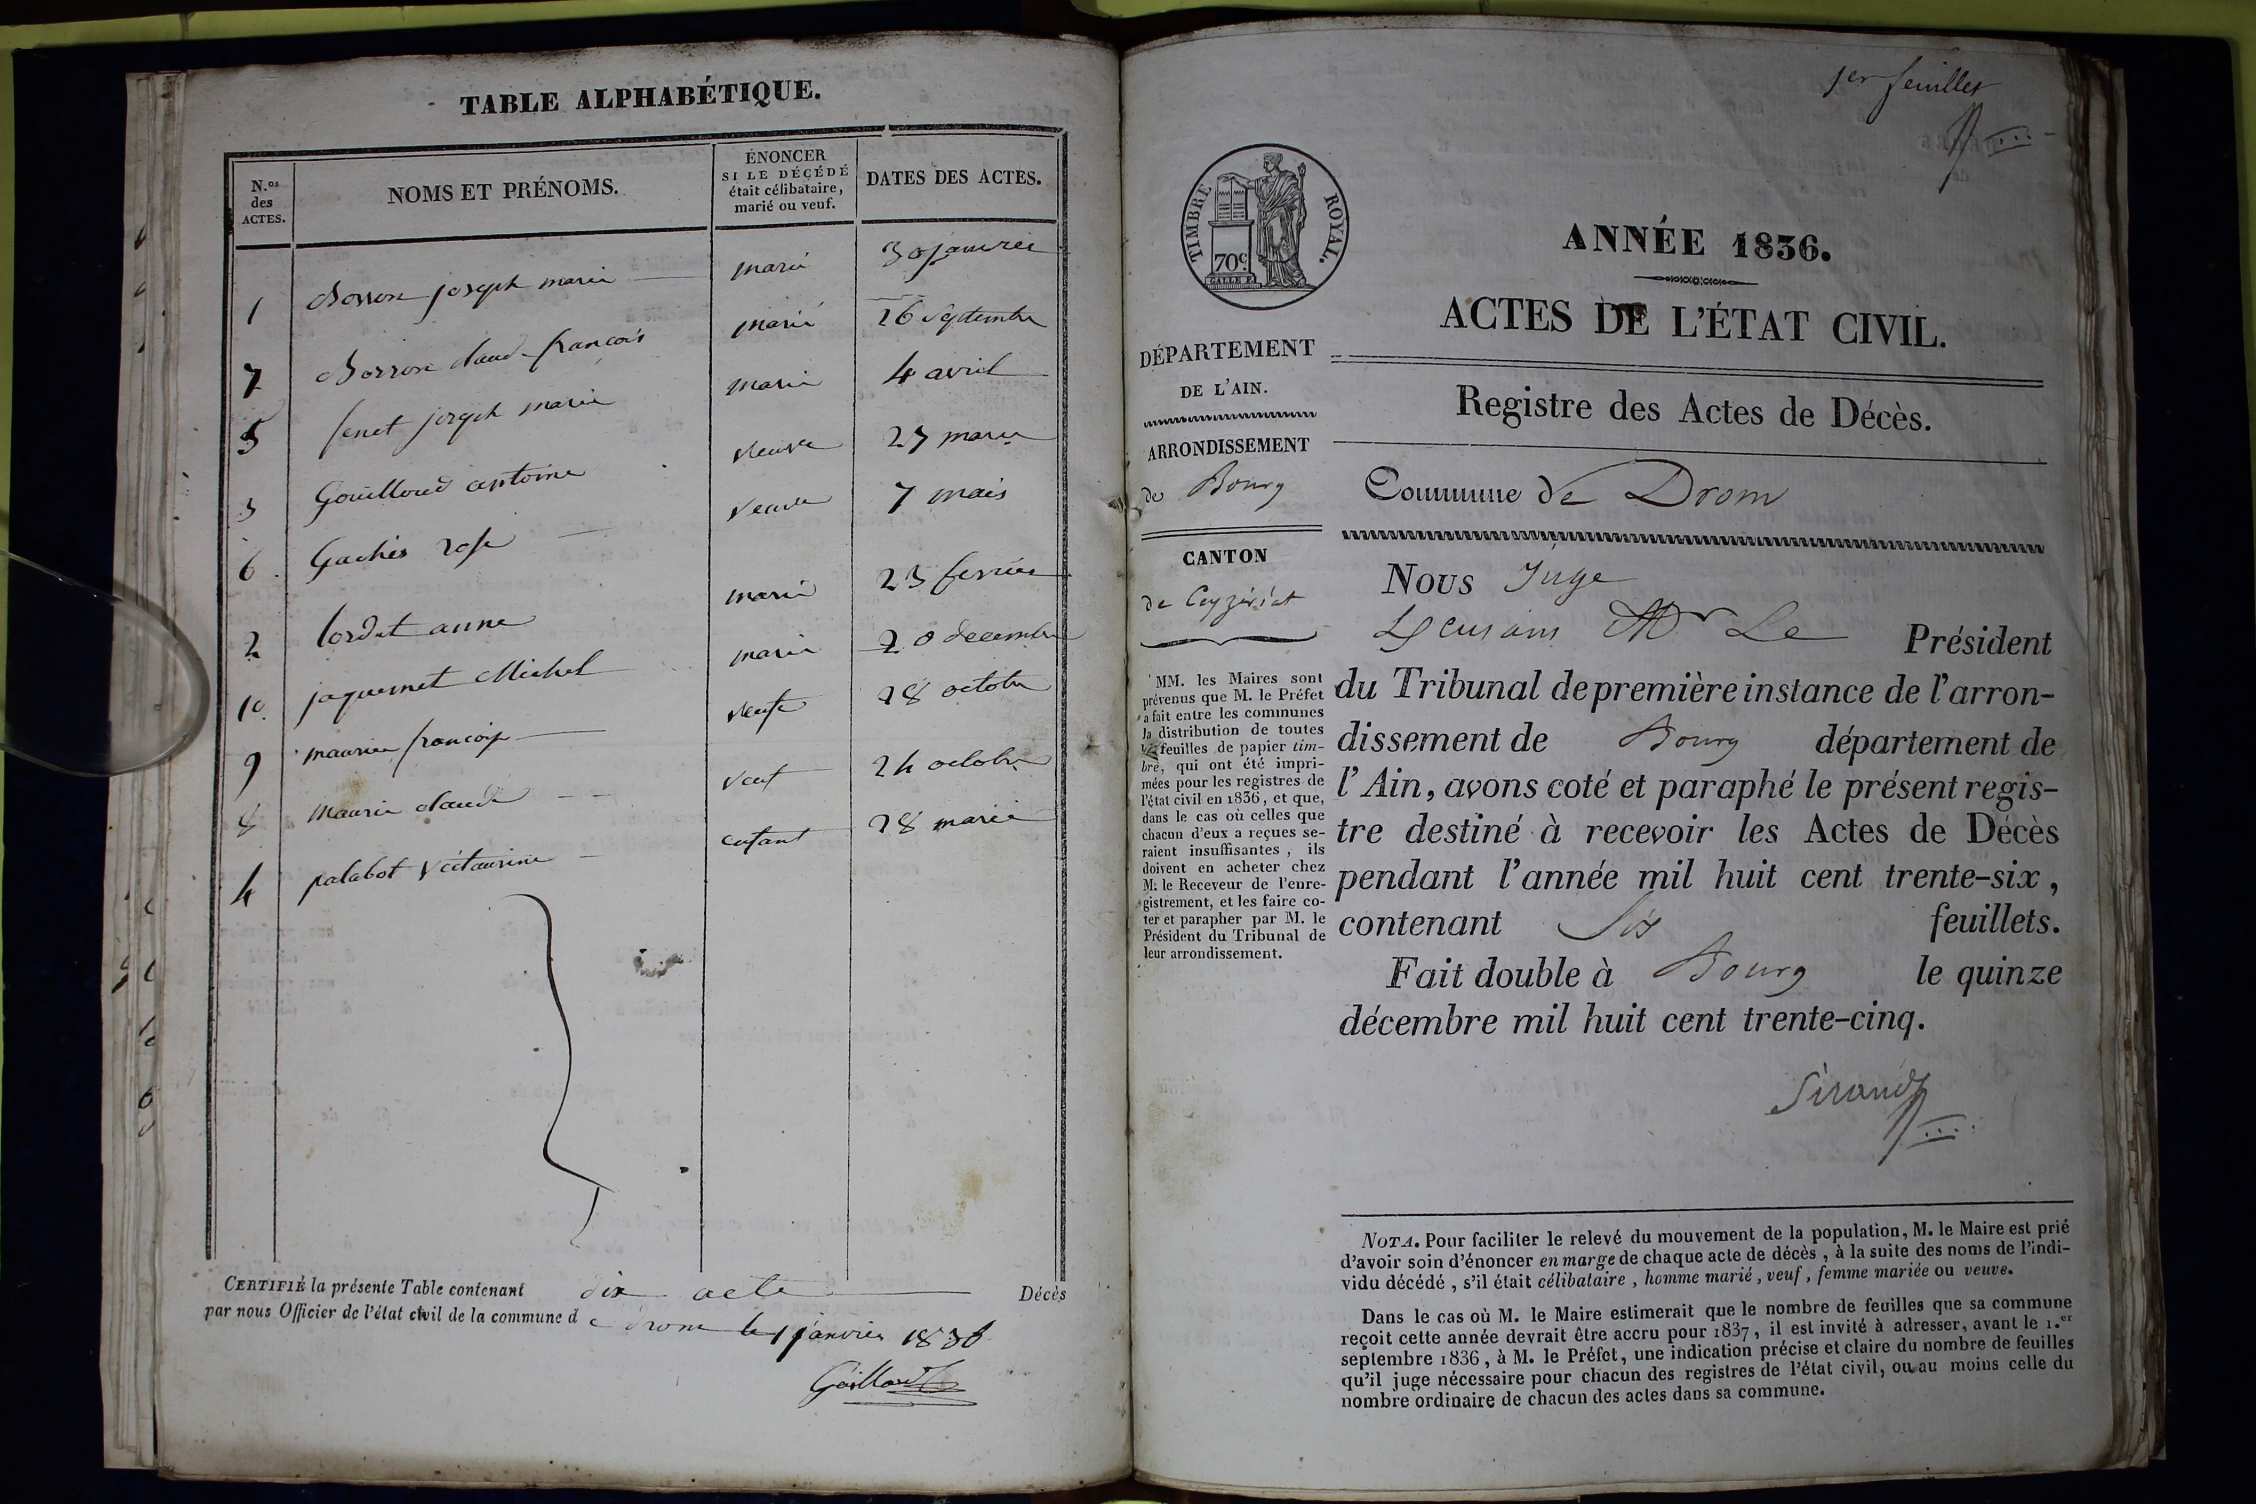 TABLE ALPHABÉTIQUE.
N.os des ACTES.
NOMS ET PRÉNOMS.
ÉNONCER
SI LE DÉCÉDÉ
était célibataire,
marié ou veuf.
DATES DES ACTES.
1 joseph marie marié 30 janvier
7 claude françois marié 26 Septembre
5 joseph marie marié 4 avril
3 Gouilloud antoine 27 mars
6 Gachis rose veuve 7 mais
2 anne marié 23 fevrier
10 jaquemet Michel marié 20 decembre
9 maurier françois 28 octobre
8 maurier claude veuf 24 octobre
4 palabot enfant 28 mars
CERTIFIÉ la présente Table contenant dix acte Décès
par nous Officier de l'état civil de la commune de drom le 1 janvier 1836
Gaillard
1er feuillet
TIMBRE ROYAL.
70c.
GALLE F.
ANNÉE 1836.
ACTES DE L'ÉTAT CIVIL.
Registre des Actes de Décès.
DÉPARTEMENT
DE L'AIN.
ARRONDISSEMENT
de Bourg
CANTON
de Ceyzériat
MM. les Maires sont
prévenus que M. le Préfet
a fait entre les communes
la distribution de toutes
les feuilles de papier tim-
bré, qui ont été impri-
mées pour les registres de
l'état civil en 1836, et que,
dans le cas où celles que
chacun d'eux a reçues se-
raient insuffisantes, ils
doivent en acheter chez
M. le Receveur de l'enre-
gistrement, et les faire co-
ter et parapher par M. le
Président du Tribunal de
leur arrondissement.
Commune de Drom
Nous Juge
Mr Le Président
du Tribunal de première instance de l'arron-
dissement de Bourg département de
l'Ain, avons coté et paraphé le présent regis-
tre destiné à recevoir les Actes de Décès
pendant l'année mil huit cent trente-six,
contenant Six feuillets.
Fait double à Bourg le quinze
décembre mil huit cent trente-cinq.
Sirand
NOTA. Pour faciliter le relevé du mouvement de la population, M. le Maire est prié
d'avoir soin d'énoncer en marge de chaque acte de décès, à la suite des noms de l'indi-
vidu décédé, s'il était célibataire, homme marié, veuf, femme mariée ou veuve.
Dans le cas où M. le Maire estimerait que le nombre de feuilles que sa commune
reçoit cette année devrait être accru pour 1837, il est invité à adresser, avant le 1.er
septembre 1836, à M. le Préfet, une indication précise et claire du nombre de feuilles
qu'il juge nécessaire pour chacun des registres de l'état civil, ou au moins celle du
nombre ordinaire de chacun des actes dans sa commune.